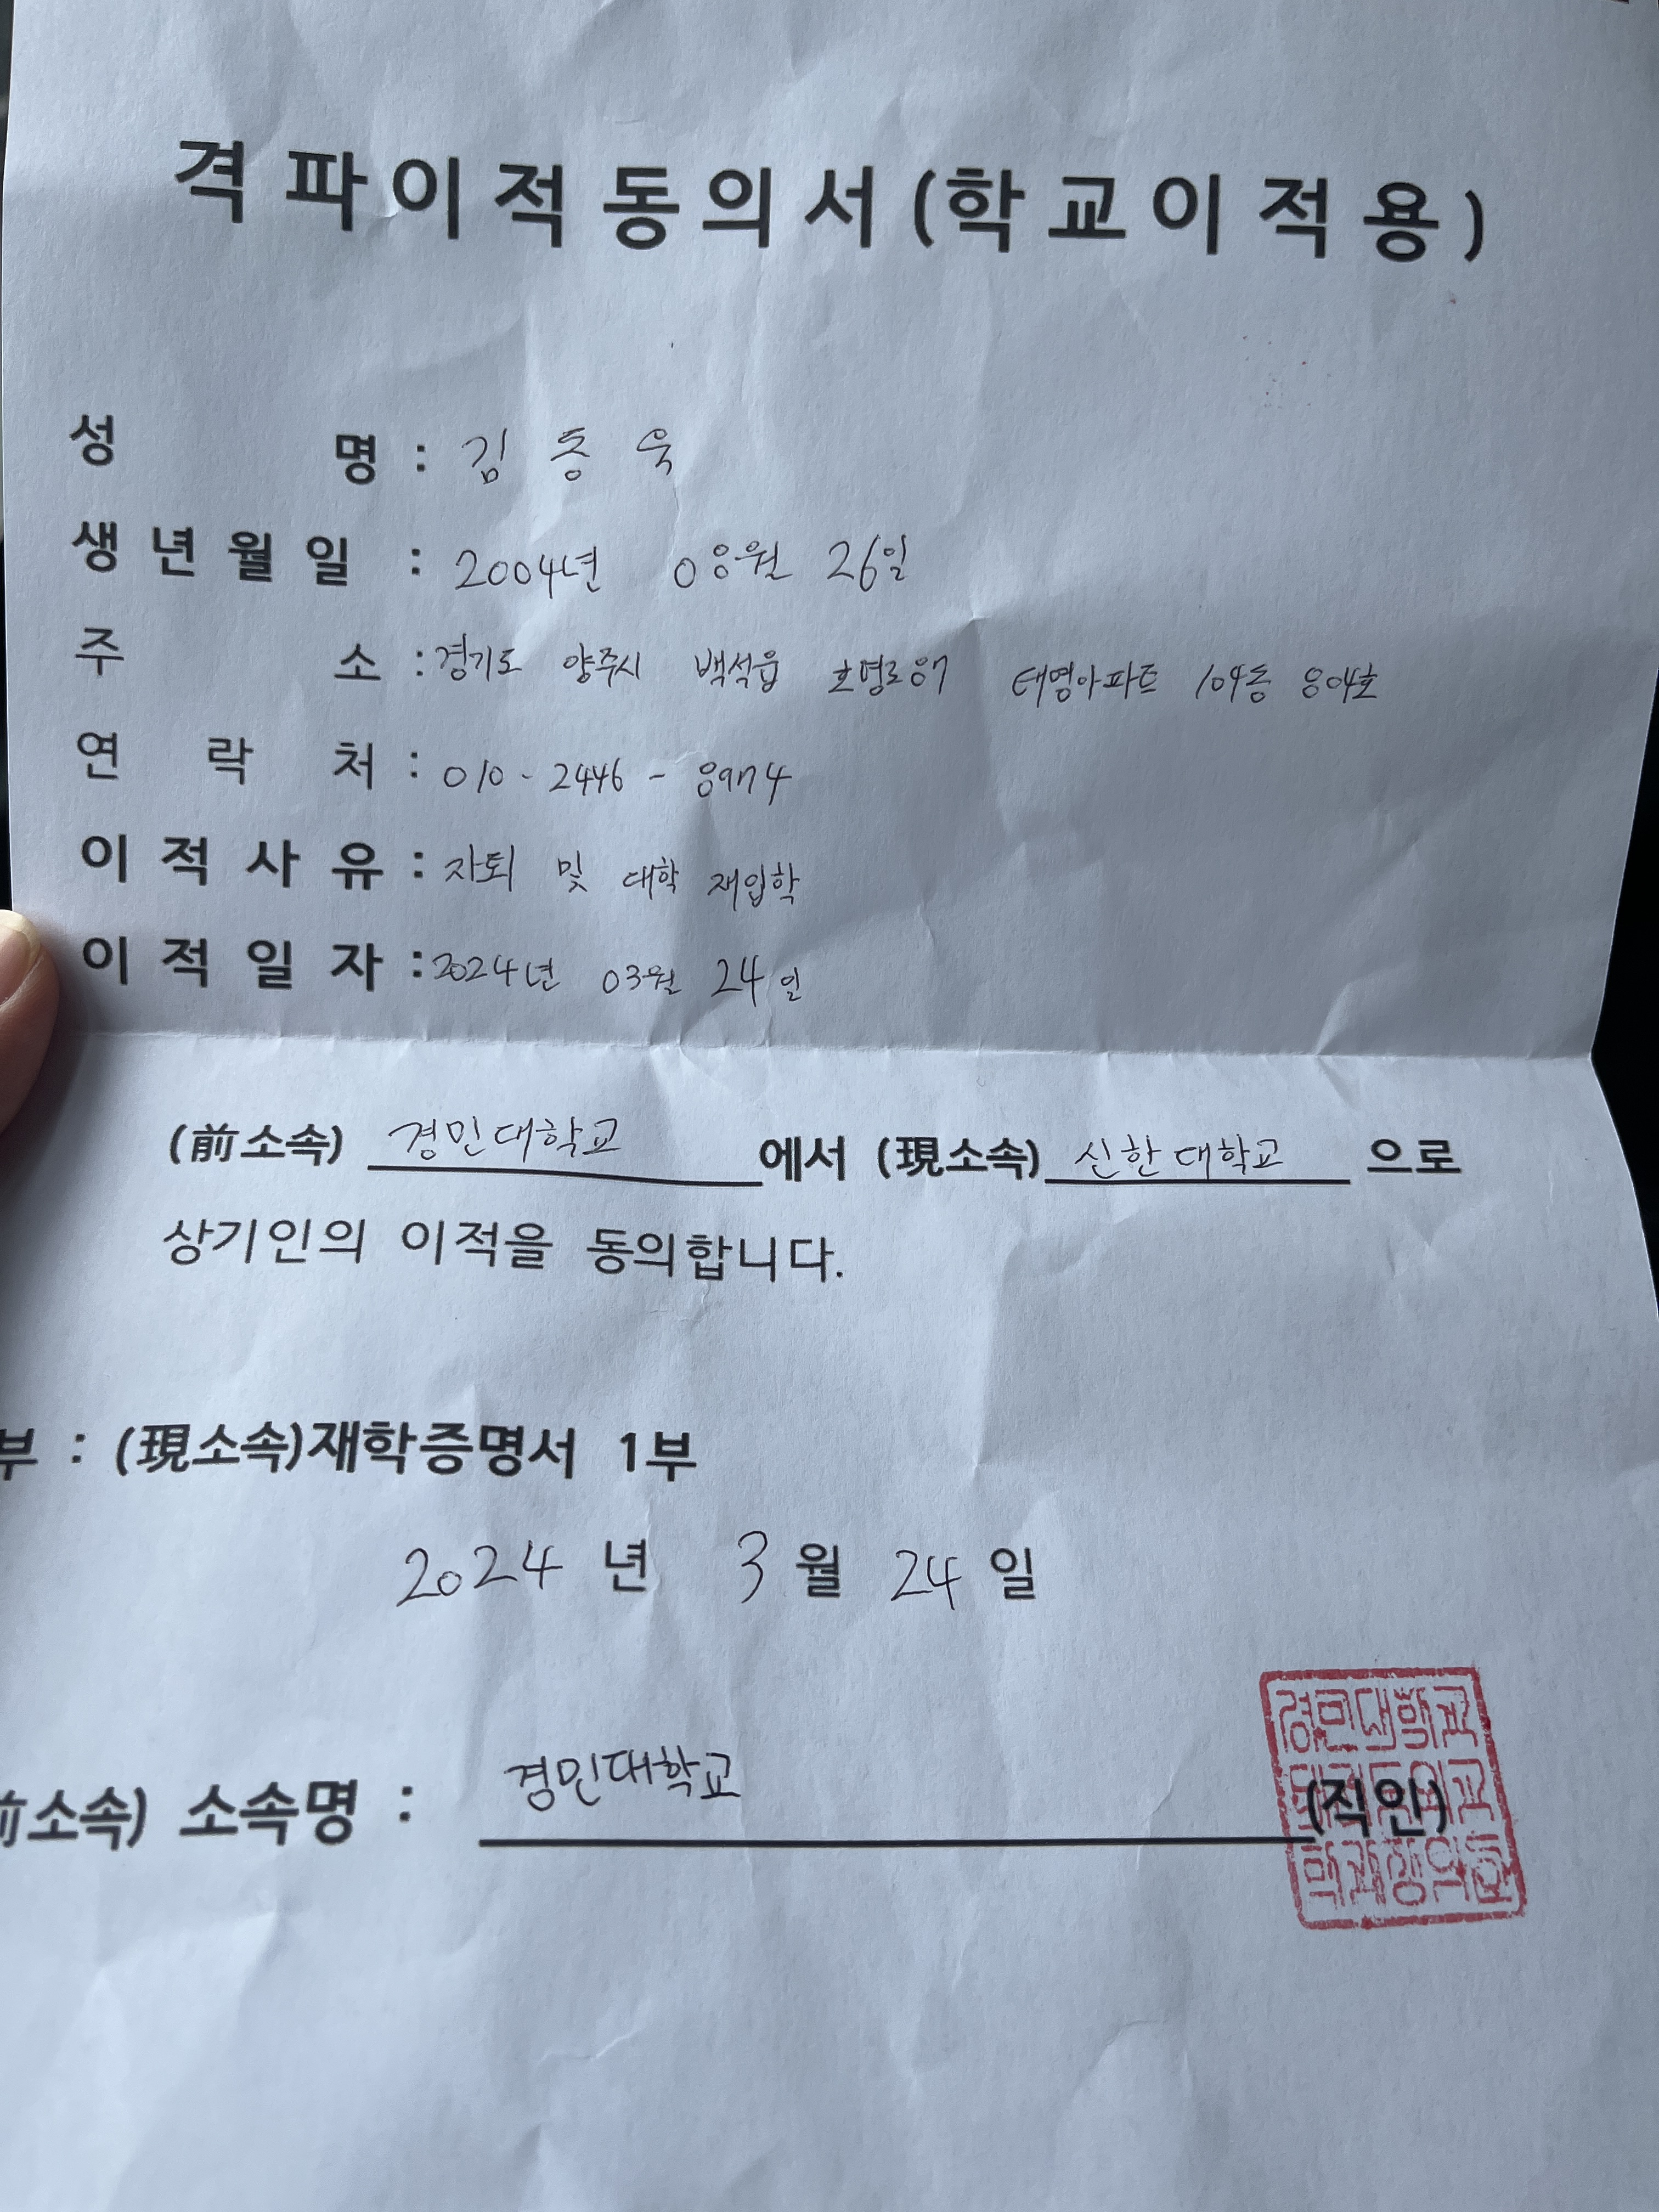 격파이적동의서(학교이적용)
성 명 : 김동욱
생년월일 : 2004년 08월 26일
주 소 : 경기도 양주시 백석읍 호명로87 태영아파트 109동 804호
연락처 : 010 - 2446 - 8974
이적사유 : 자퇴 및 대학 재입학
이적일자 : 2024년 03월 24일
(前소속) 경민대학교 에서 (現소속) 신한대학교 으로
상기인의 이적을 동의합니다.
부 : (現소속)재학증명서 1부
2024 년 3 월 24 일
前소속) 소속명 : 경민대학교 (직인)
경민대학교